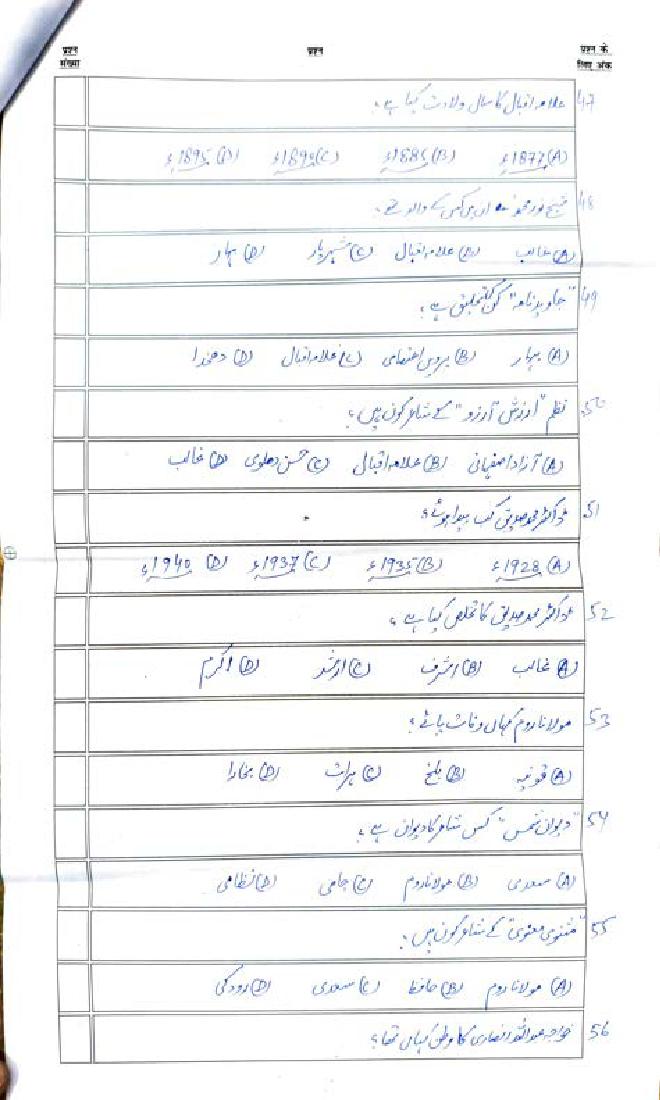 प्रश्न संख्या
प्रश्न
प्रश्न के लिए अंक
47 علامہ اقبال کا سال ولادت کیا ہے؟
(A) 1877ء (B) 1885ء (C) 1890ء (D) 1895ء
48 شیخ نور محمد ان میں کس کے والد تھے؟
(A) غالب (B) علامہ اقبال (C) شہریار (D) بہار
49 "جاوید نامہ" کس کی تخلیق ہے؟
(A) بہار (B) پروین اعتصامی (C) علامہ اقبال (D) دهخدا
50 نظم "ارزش آرزو" کے شاعر کون ہیں؟
(A) آزاد اصفہانی (B) علامہ اقبال (C) حسن دہلوی (D) غالب
51 ڈاکٹر محمد صدیق کب پیدا ہوئے؟
(A) 1928ء (B) 1935ء (C) 1937ء (D) 1940ء
52 ڈاکٹر محمد صدیق کا تخلص کیا ہے؟
(A) غالب (B) اشرف (C) ارشد (D) اکرم
53 مولانا روم کہاں وفات پائے؟
(A) قونیہ (B) بلخ (C) ہرات (D) بخارا
54 "دیوان شمس" کس شاعر کا دیوان ہے؟
(A) سعدی (B) مولانا روم (C) جامی (D) نظامی
55 "مثنوی معنوی" کے شاعر کون ہیں؟
(A) مولانا روم (B) حافظ (C) سعدی (D) رودکی
56 خواجہ عبداللہ انصاری کا وطن کہاں تھا؟